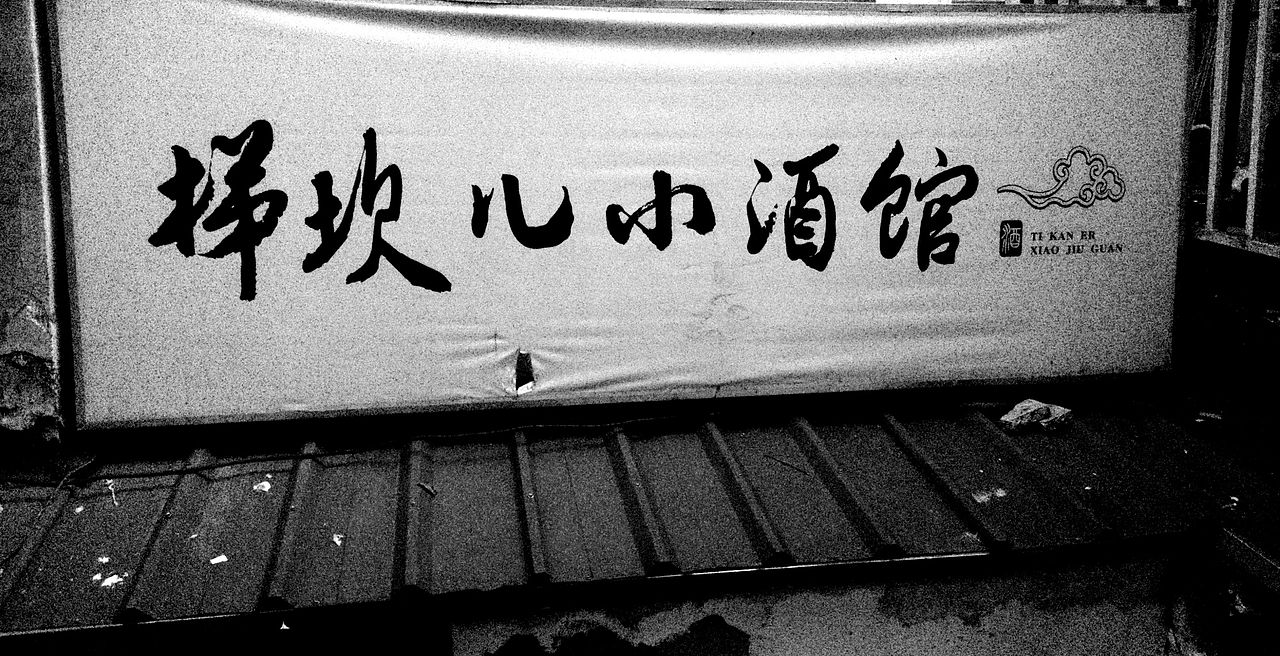 梯坎儿小酒馆
酒
TI KAN ER
XIAO JIU GUAN